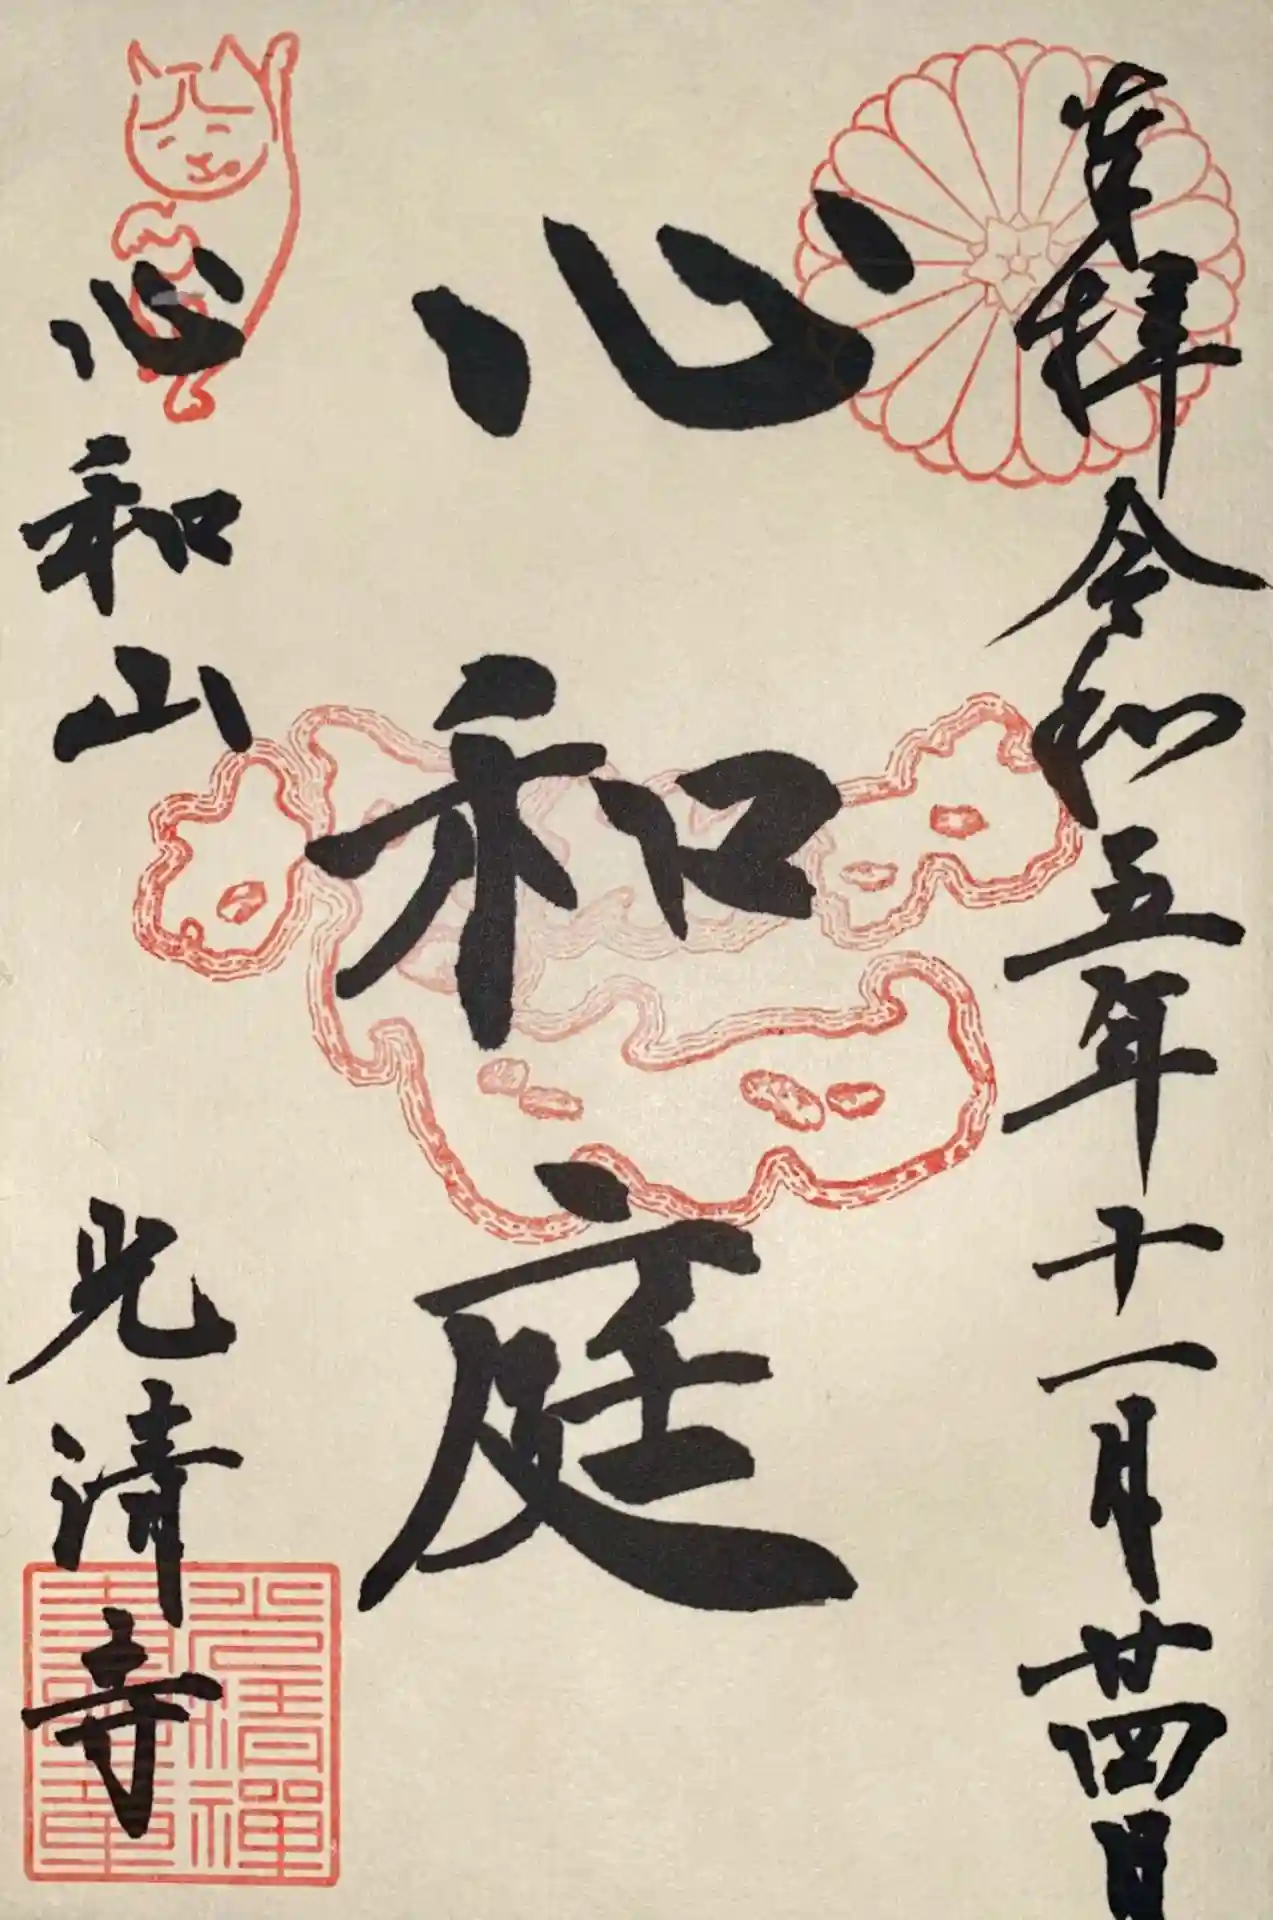 奉拝 令和五年十一月廿四日
心和庭
心和山 光清寺